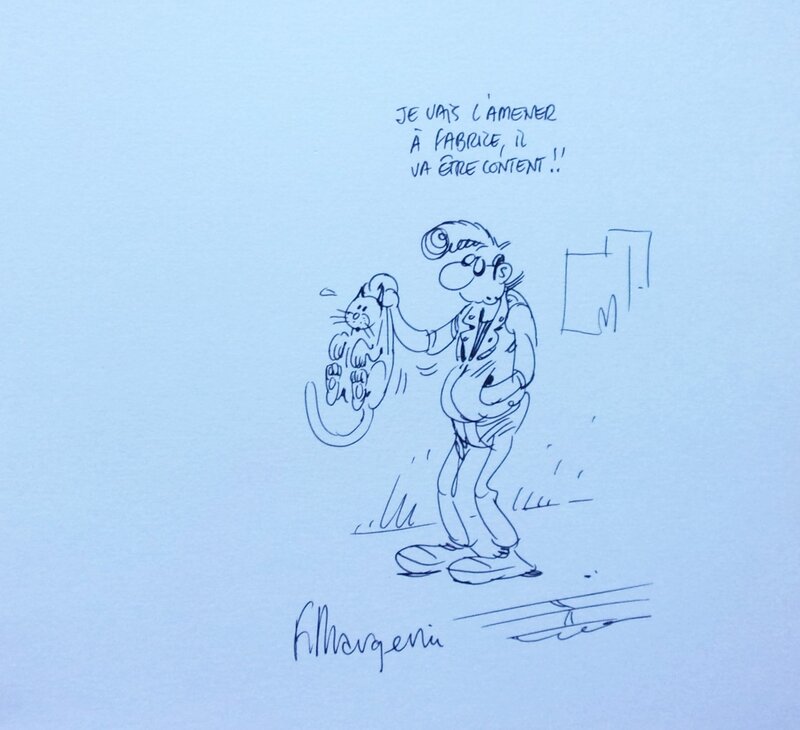 JE VAIS L'AMENER
À FABRICE, IL
VA ÊTRE CONTENT !!
F. Margerin